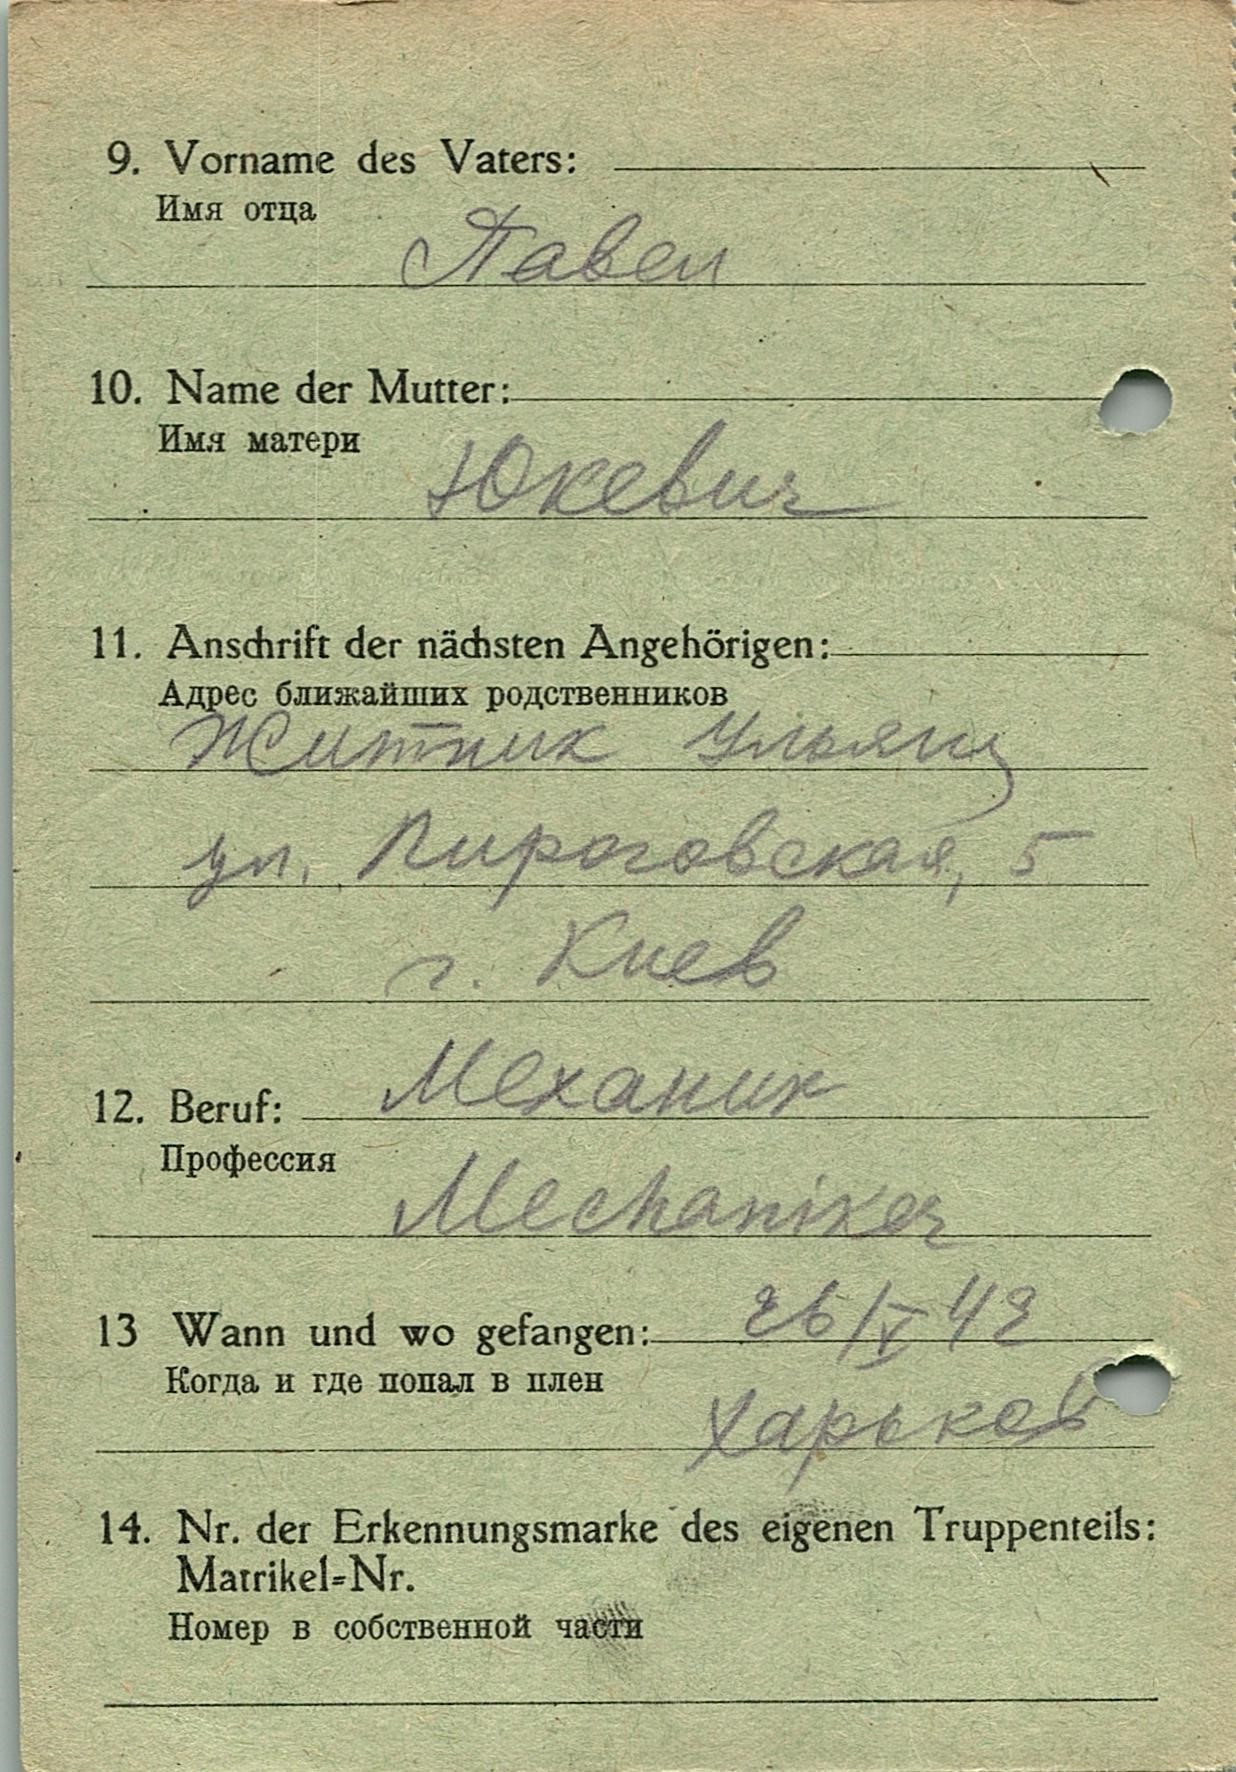 9. Vorname des Vaters:
Имя отца
Павел
10. Name der Mutter:
Имя матери
Юкевич
11. Anschrift der nächsten Angehörigen:
Адрес ближайших родственников
Житник Ульяна
ул. Пироговская, 5
г. Киев
Механик
12. Beruf:
Профессия
Mechaniker
26/V 42
13 Wann und wo gefangen:
Когда и где попал в плен
Харьков
14. Nr. der Erkennungsmarke des eigenen Truppenteils:
Matrikel=Nr.
Номер в собственной части